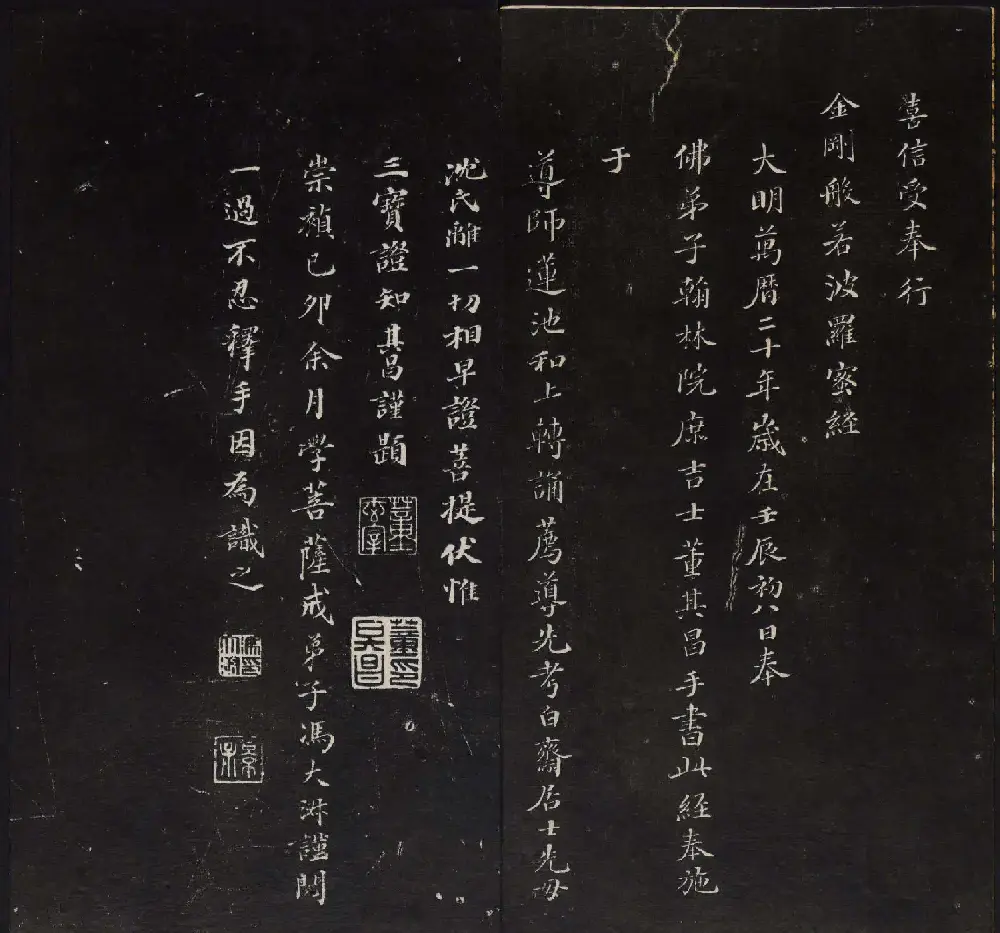 喜信受奉行
金剛般若波羅蜜経
大明萬曆二十年歲在壬辰初八日奉
佛弟子翰林院庶吉士董其昌手書此経奉施
于
導師蓮池和上轉誦薦導先考白齋居士先母
沈氏離一切相早證菩提伏惟
三寶證知其昌謹題
董玄宰
董其昌印
崇禎己卯余月學菩薩戒弟子馮大
謹閱
一過不忍釋手因為識之